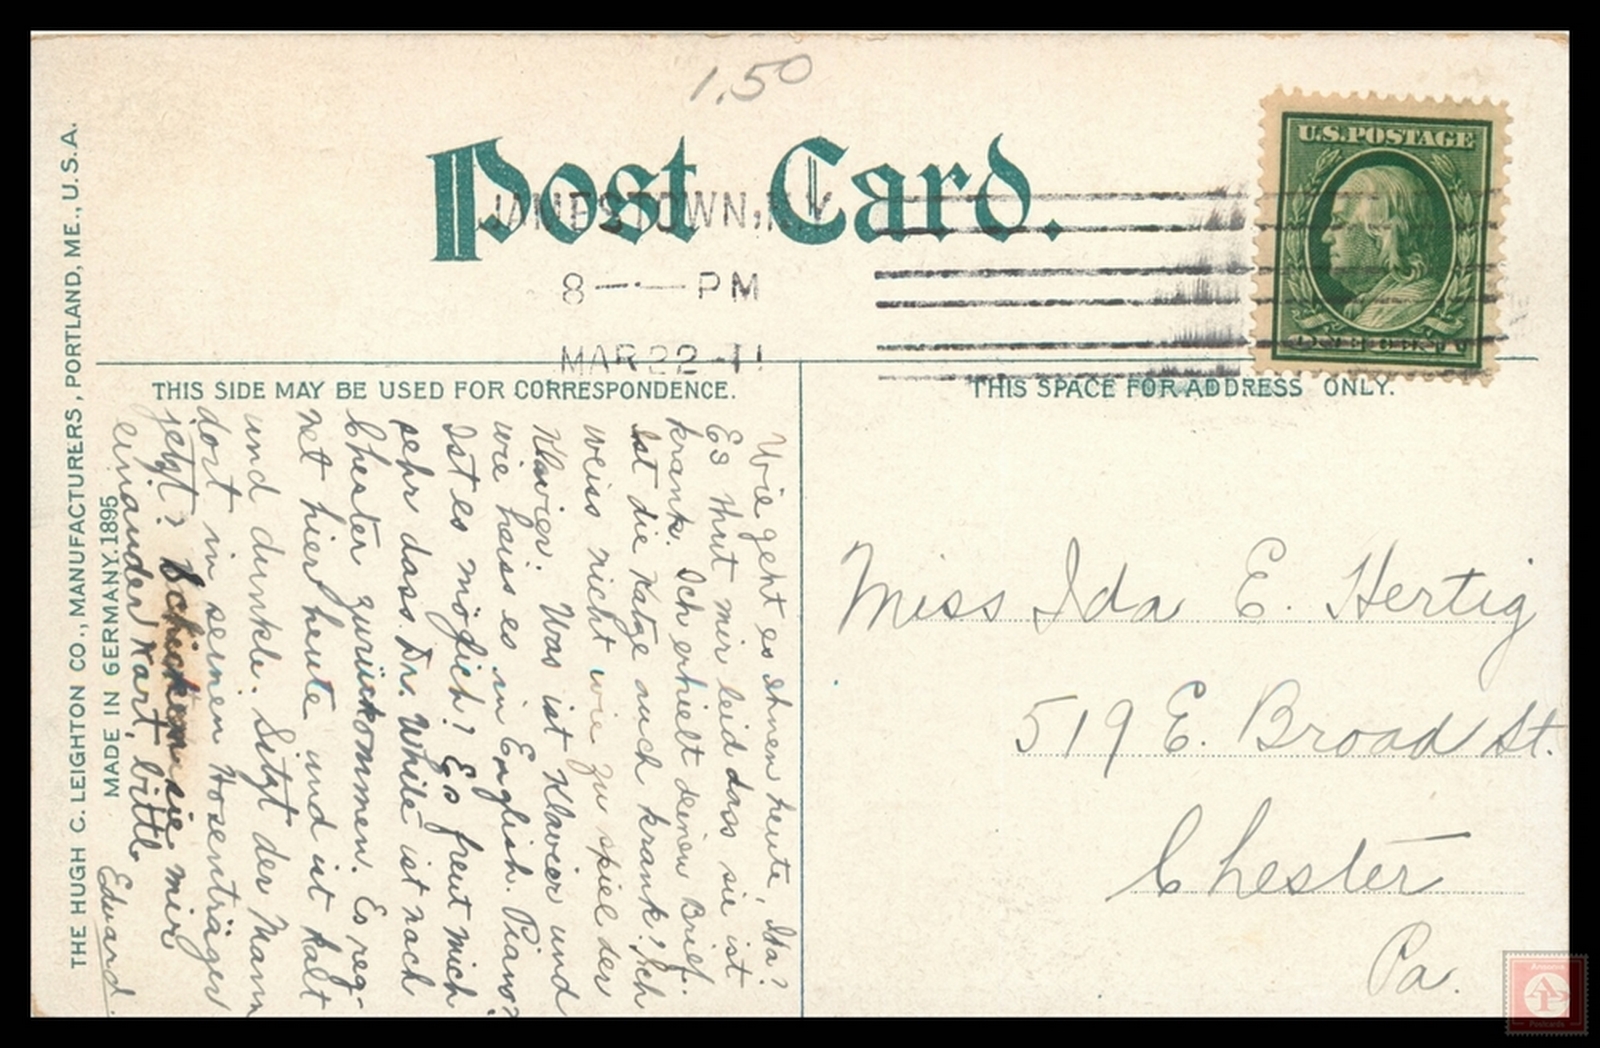 1.50
Post Card.
JAMESTOWN, N.Y.
8 — PM
MAR 22 11
U.S. POSTAGE
THIS SIDE MAY BE USED FOR CORRESPONDENCE.
THIS SPACE FOR ADDRESS ONLY.
Wie geht es Ihnen heute, Ida?
Es thut mir leid dass sie ist
krank. Ich erhielt deinen Brief.
Ist die Katze auch krank? Ich
weiss nicht wie zu spiel der
Klavier. Was ist Klavier und
wie heiss es in English. Piano?
Ist es möglich? Es freut mich
sehr dass Dr. White ist nach
Chester zurückkommen. Es reg-
net hier heute und ist kalt
und dunkle. Sitzt der Mann
dort in seinen Hosenträger
jetzt? Schicken sie mir
einander Kart, bitte
Edward.
Miss Ida E. Hertig
519 E. Broad St.
Chester
Pa.
THE HUGH C. LEIGHTON CO., MANUFACTURERS, PORTLAND, ME., U.S.A.
MADE IN GERMANY. 1895
Postcards